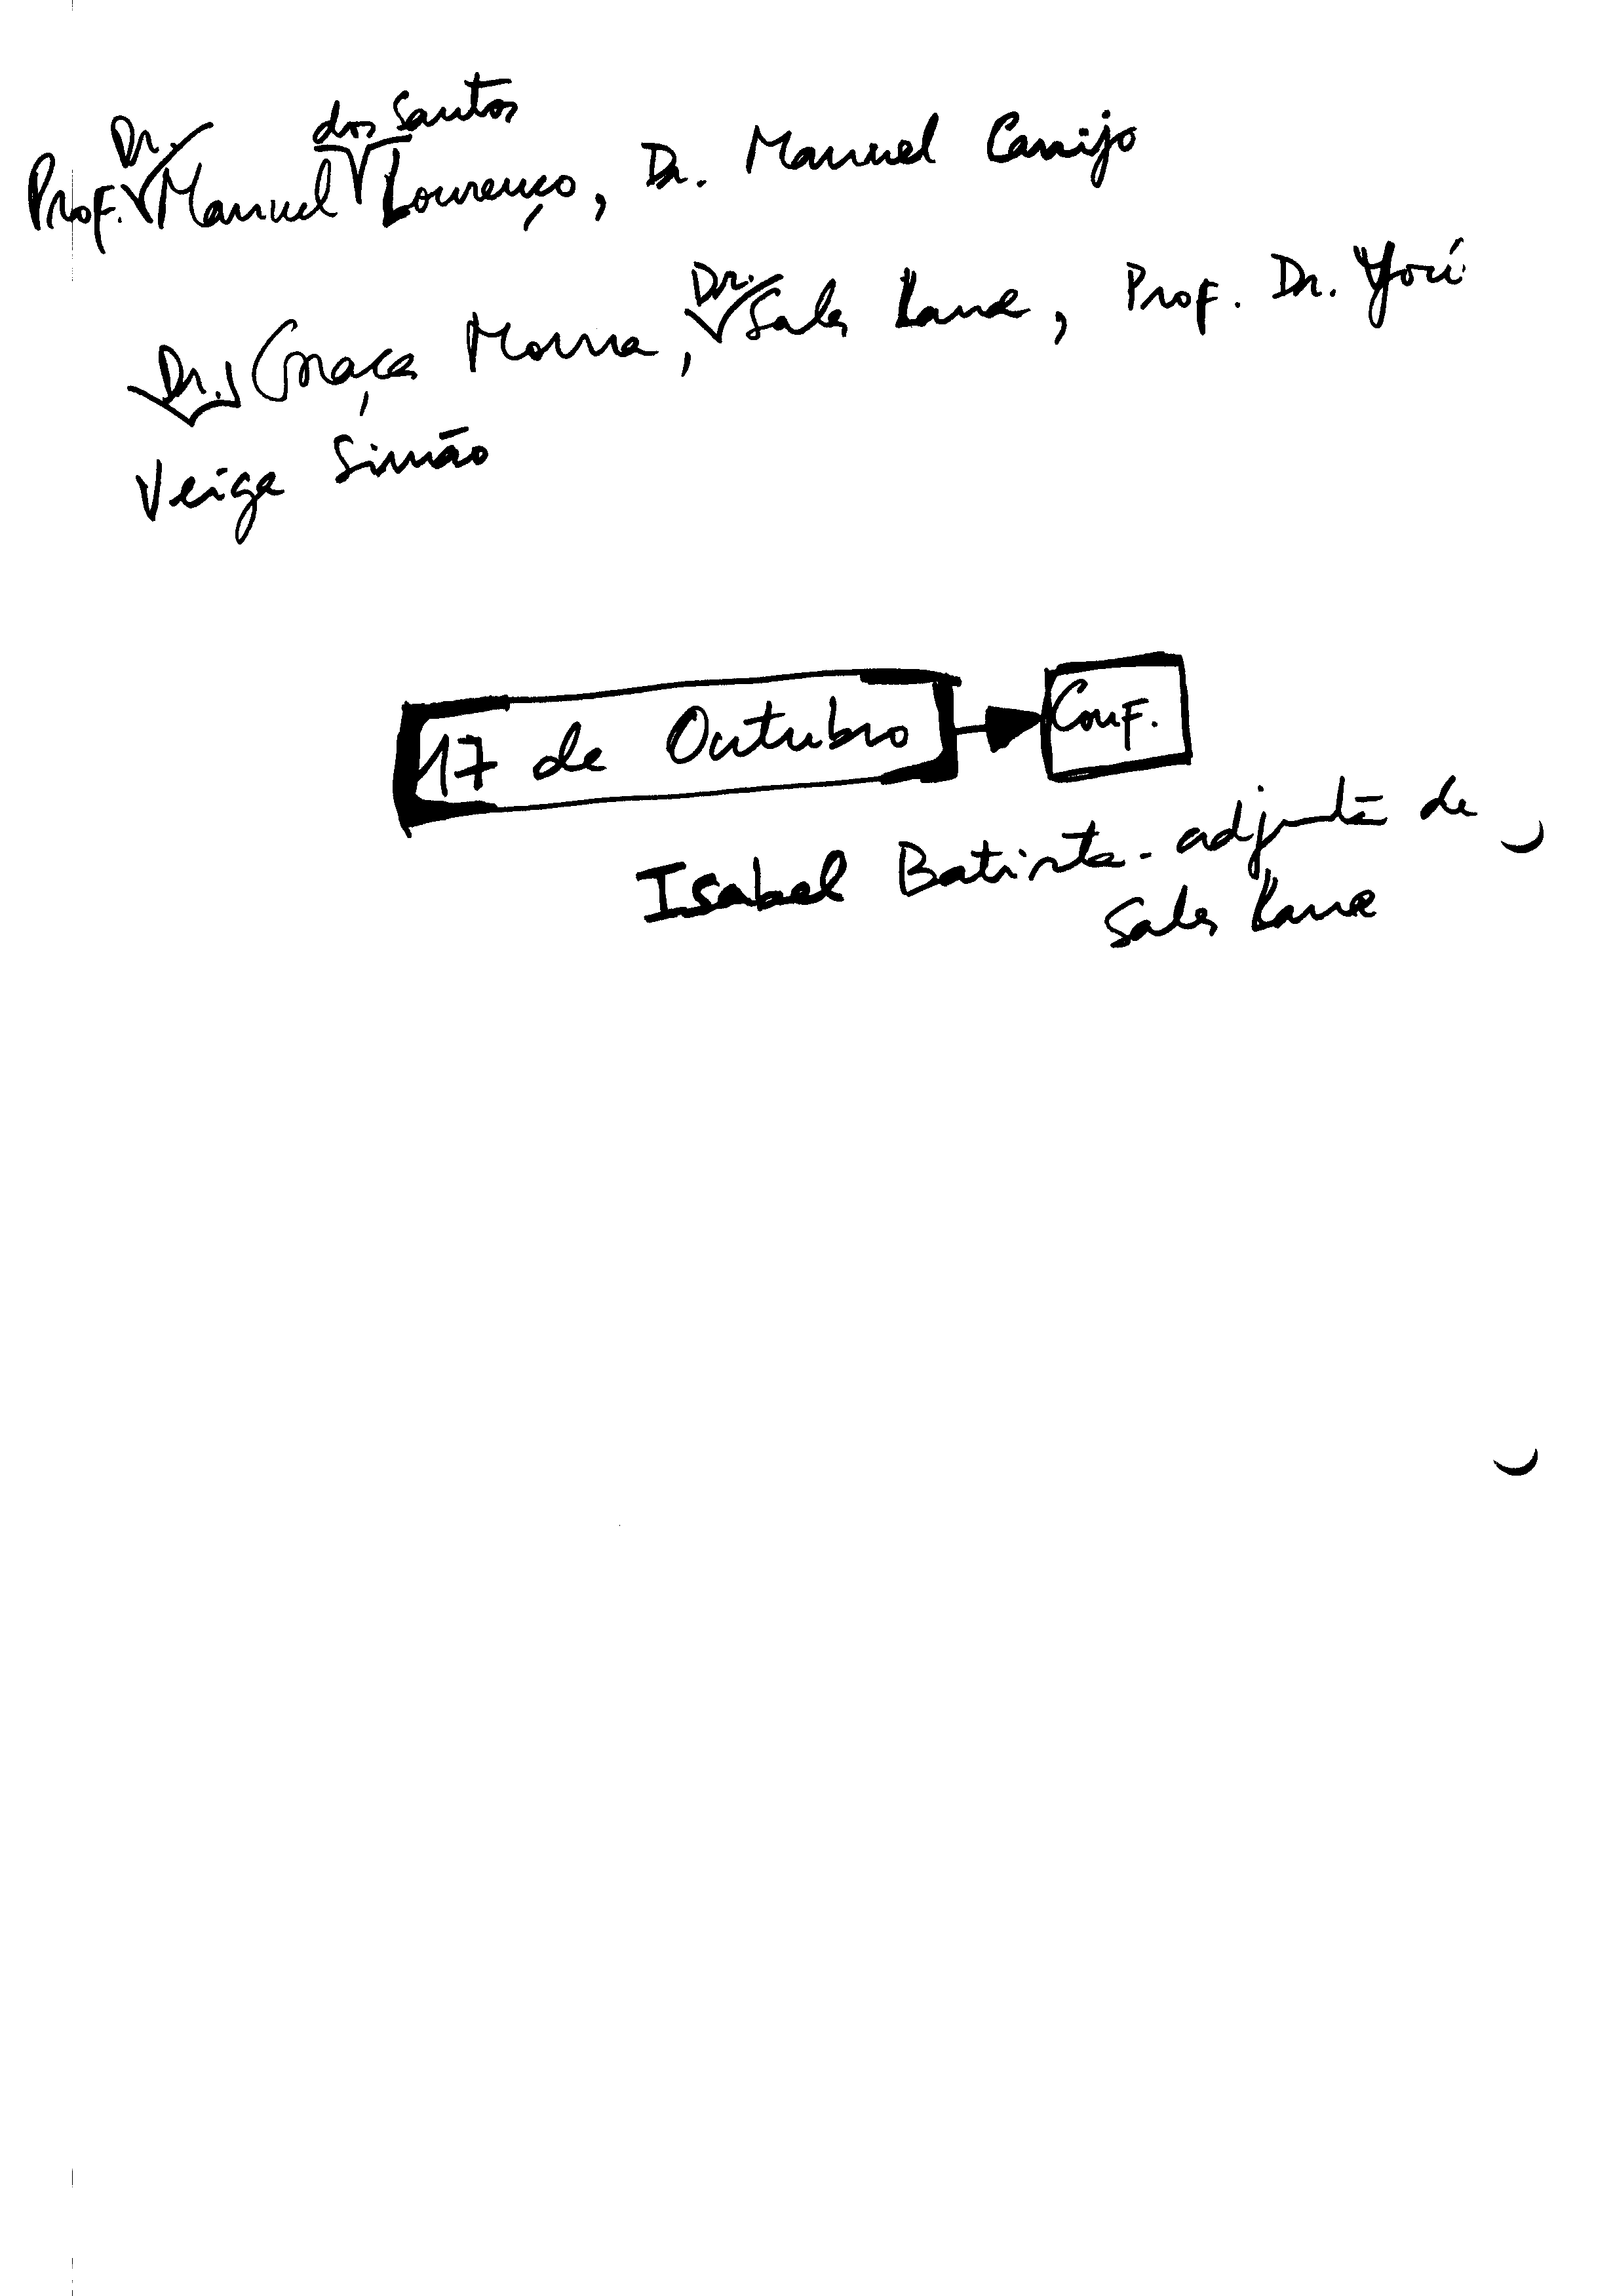 Prof. Dr. Manuel dos Santos Lourenço, Dr. Manuel Carrijo
Dr. Graça Moura, Dr. Sales Lane, Prof. Dr. José
Veiga Simão
17 de Outubro Conf.
Isabel Batista - adjunta de
Sales Lane